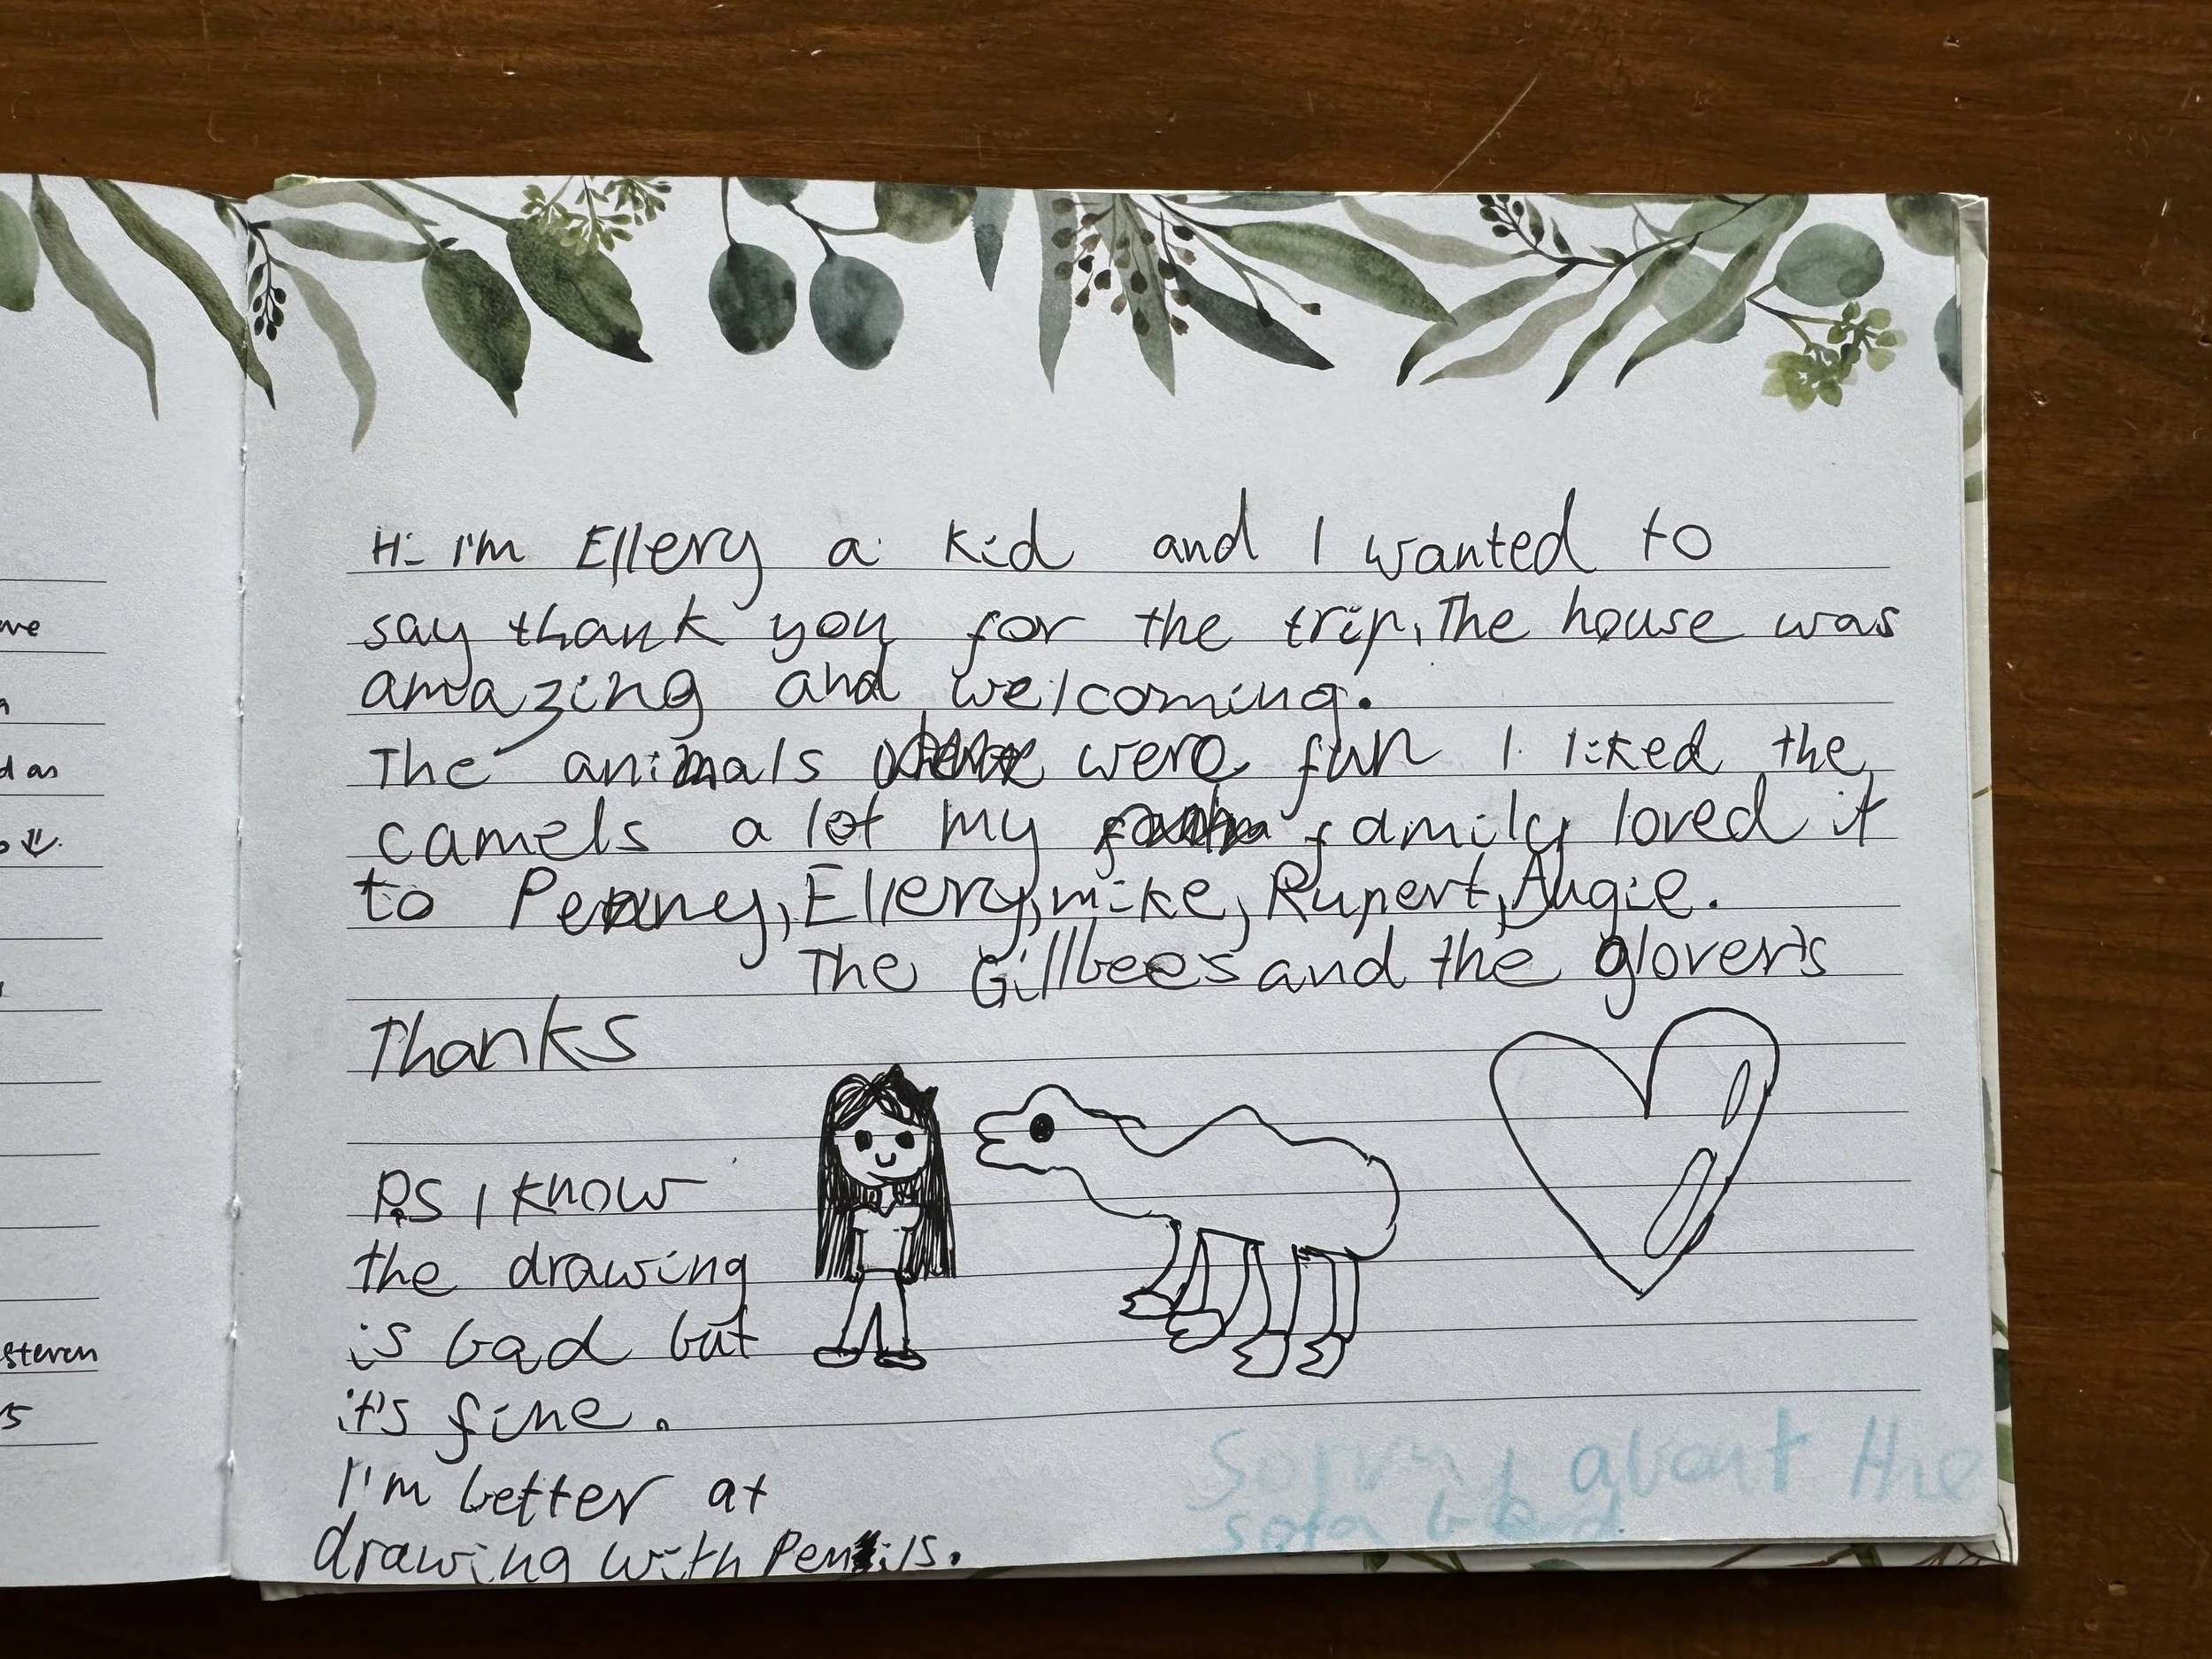 ve
d as
steren
Hi I'm Ellery a kid and I wanted to
say thank you for the trip, The house was
amazing and welcoming.
The animals were fun I liked the
camels a lot my family loved it
to Penny, Ellery, mike, Rupert, Augie.
The Gillbees and the glover's
Thanks
P.S I know
the drawing
is bad but
it's fine.
I'm better at
drawing with Pencils.
Sorry about the
sofa bed